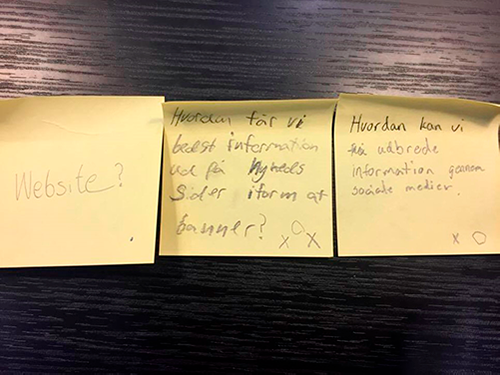 Website?
Hvordan får vi
bedst information
ud på Nyheds
Sider iform af
banner?
X O X
Hvordan kan vi
udbrede
information gennem
sociale medier.
X O